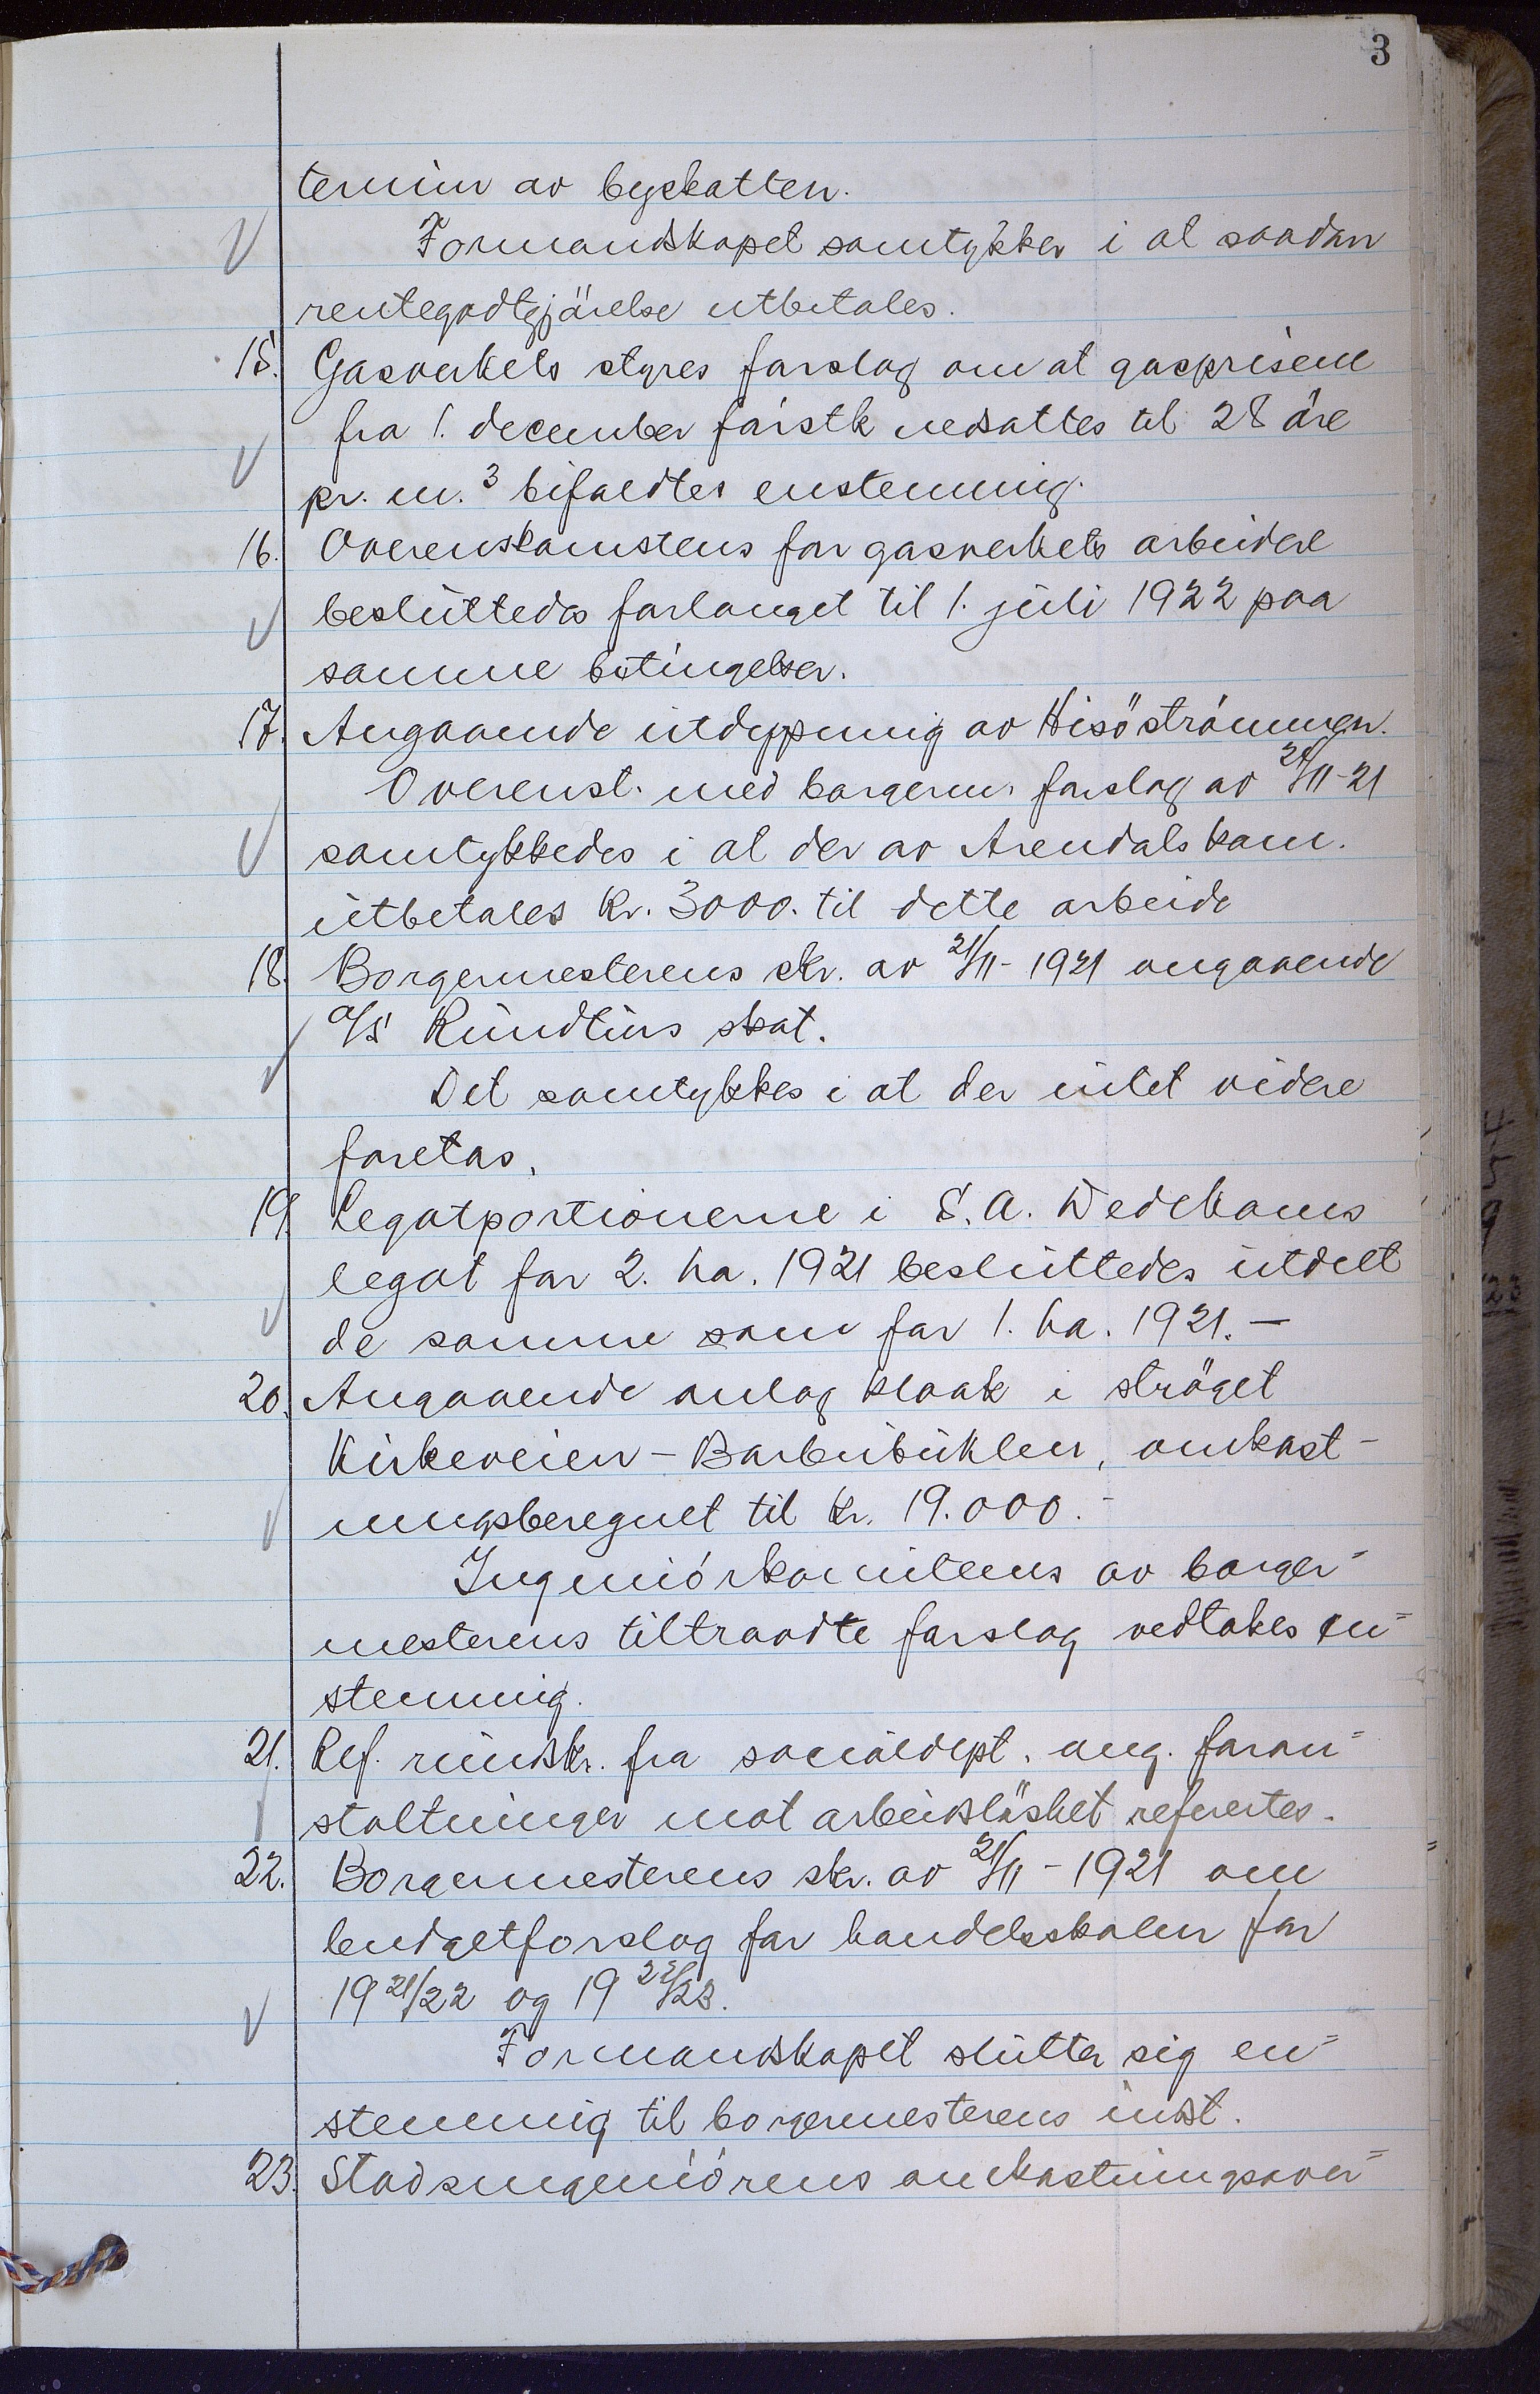 3
termin av byskatten.
Formandskapet samtykker i at saadan
rentegodtgjörelse utbetales.
15. Gasverkets styres forslag om at gasprisene
fra 1. december förstk nedsattes til 28 öre
pr. m.³ bifaldtes enstemmig.
16. Overenskomstens for gasverkets arbeidere
besluttedes forlænget til 1. juli 1922 paa
samme betingelser.
17. Angaaende utdypning av Hisöströmmen.
Overenst. med borgerm. forslag av 21/11-21
samtykkedes i at der av Arendals kom.
utbetales kr. 3000. til dette arbeide
18. Borgermesterens skr. av 21/11-1921 angaaende
a/s Rundtürs skat.
Det samtykkes i at der intet videre
foretas.
19. Legatportionerne i S. A. Dedekams
legat for 2. ha. 1921 besluttedes utdelt
de samme som for 1. ha. 1921. —
20. Angaaende anlæg kloak i ströget
Kirkeveien - Barbubukken, omkost-
ningsberegnet til kr. 19.000.-
Ingeniörkomiteens av borger=
mesterens tiltraadte forslag vedtakes en=
stemmig.
21. Ref. rundskr. fra socialdept. ang. foran=
staltninger mot arbeidslöshet refereertes.
22. Borgermesterens skr. av 21/11-1921 om
budgetforslag for handelsskolen for
1921/22 og 1922/23.
Formandskapet slutter sig en=
stemmig til borgermesterens indst.
23. Stadsingeniörens omkostningsover=